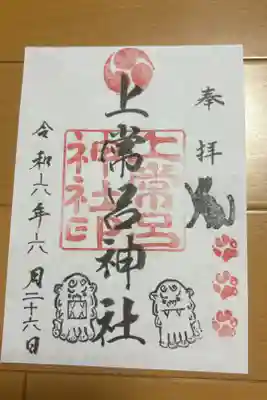 奉拝
上常呂神社
上常呂神社印
令和六年六月二十六日